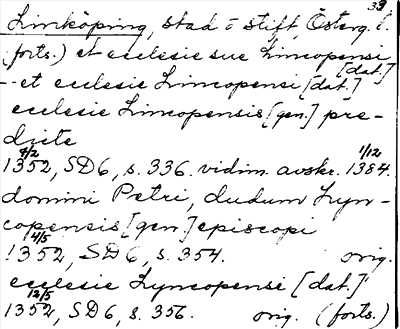 33
Linköping, stad o stift, Österg. l.
(forts.) et ecclesie sue Lincopensi
[dat.]
- et ecclesie Lincopensi [dat.]
ecclesie Lincopensis [gen.] pre-
dicte
4/2 1/12
1352, SD6, s. 336. vidim. avskr. 1384.
domini Petri, dudum Lyn-
copensis [gen.] episcopi
4/5
1352, SD6, s. 354. orig.
ecclesie Lyncopensi [dat.]
12/5
1352, SD6, s. 356. orig. (forts.)